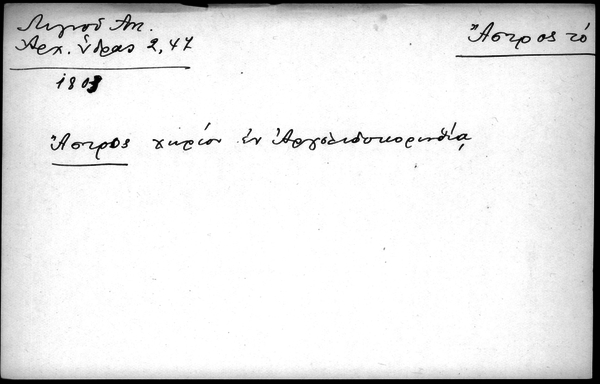 Λιγνοῦ Ἀν.
Ἀρχ. Ὕδρας 2, 47
1803
Ἄστρος τό
Ἄστρος χωρίον ἐν Ἀργολιδοκορινθίᾳ